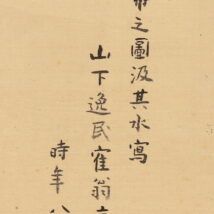 之圖汲其水寫
山下逸民寉翁
時年八